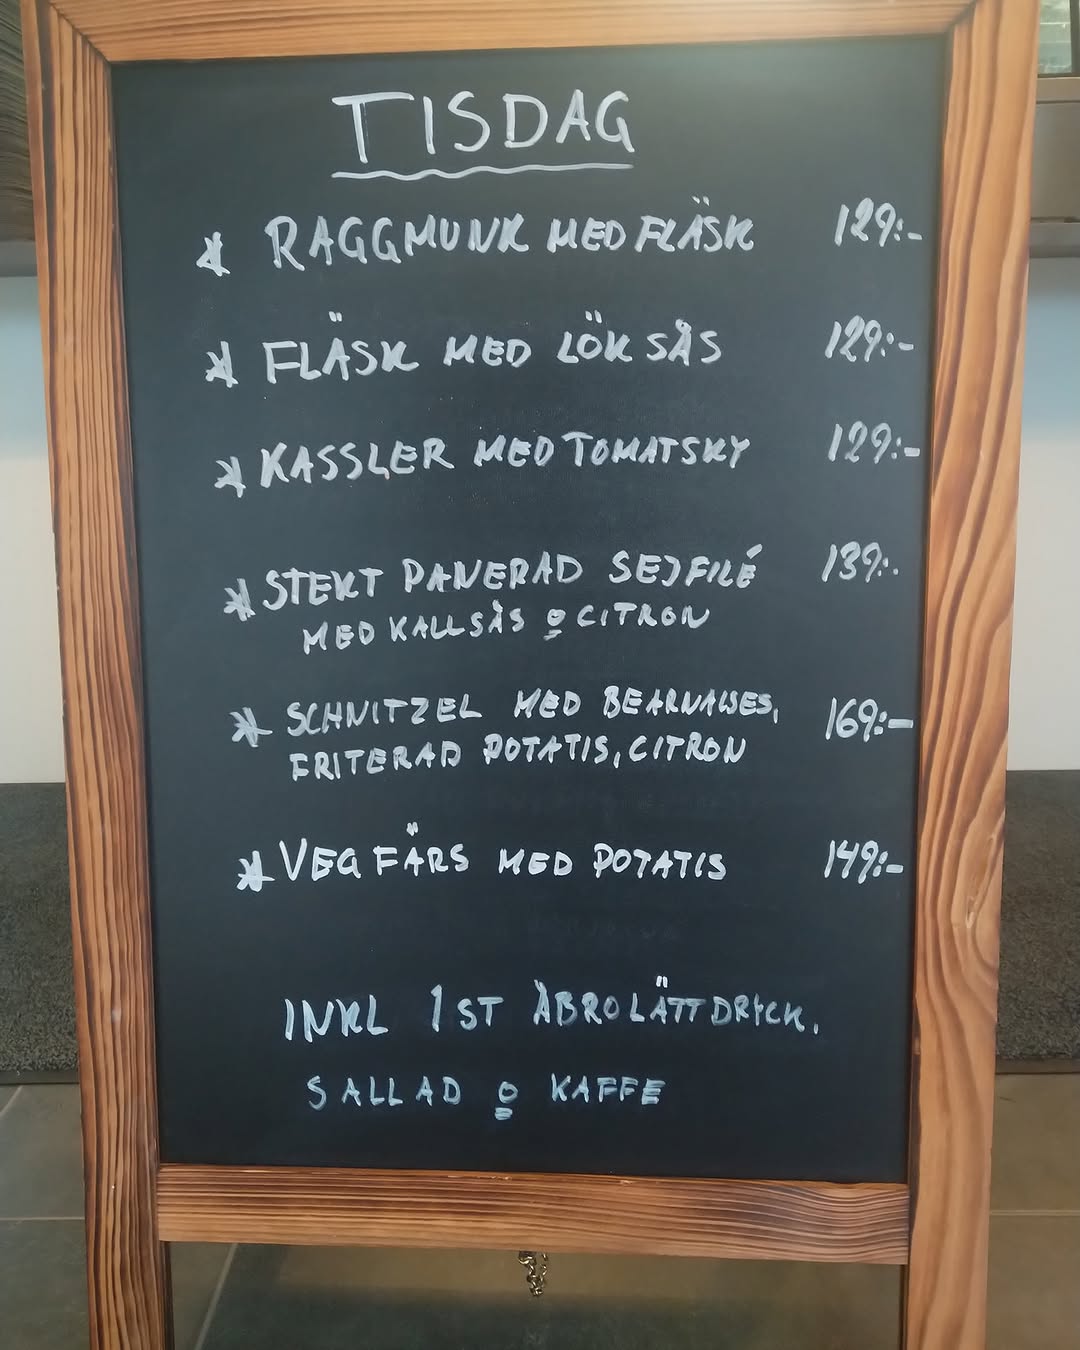 TISDAG
* RAGGMUNK MED FLÄSK 129:-
* FLÄSK MED LÖK SÅS 129:-
* KASSLER MED TOMATSKY 129:-
* STEKT PANERAD SEJFILÉ 139:-
MED KALLSÅS o CITRON
* SCHNITZEL MED BEARNAISES, 169:-
FRITERAD POTATIS, CITRON
* VEG FÄRS MED POTATIS 149:-
INKL 1 ST ÅBRO LÄTTDRYCK.
SALLAD o KAFFE